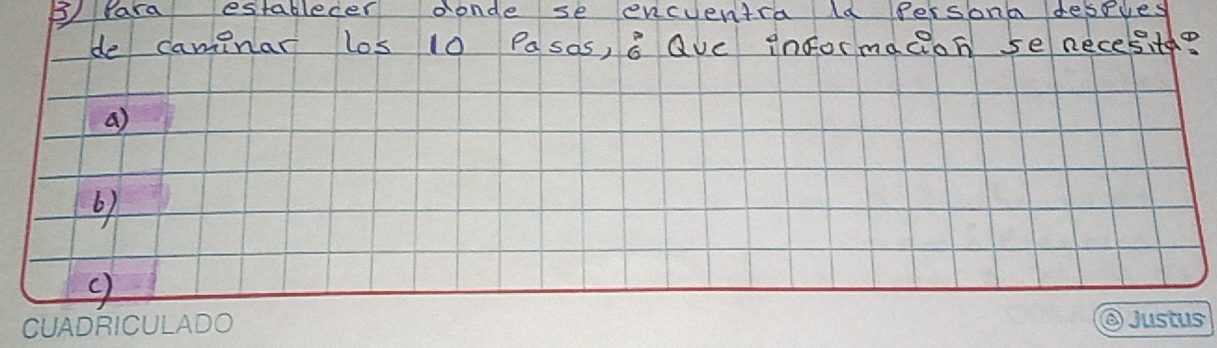 3) Para establecer donde se encuentra la Persona despues
de caminar los 10 Pasos, ¿ Que informacion se necesita?
a)
b)
c)
CUADRICULADO
Justus